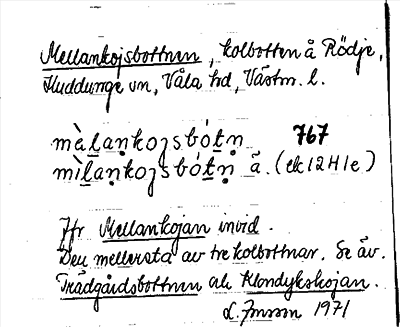 Mellankojsbottnen, kolbotten å Rödje,
Huddunge sn, Våla hd, Västm. l.
màḷaṇkojsbótṇ 767
mìḷaṇkojsbótṇ ä. (ek 12 H 1 e)
Jfr Mellankojan invid.
Den mellersta av tre kolbottnar. Se äv.
Trädgårdsbottnen och Klondykskojan.
1971